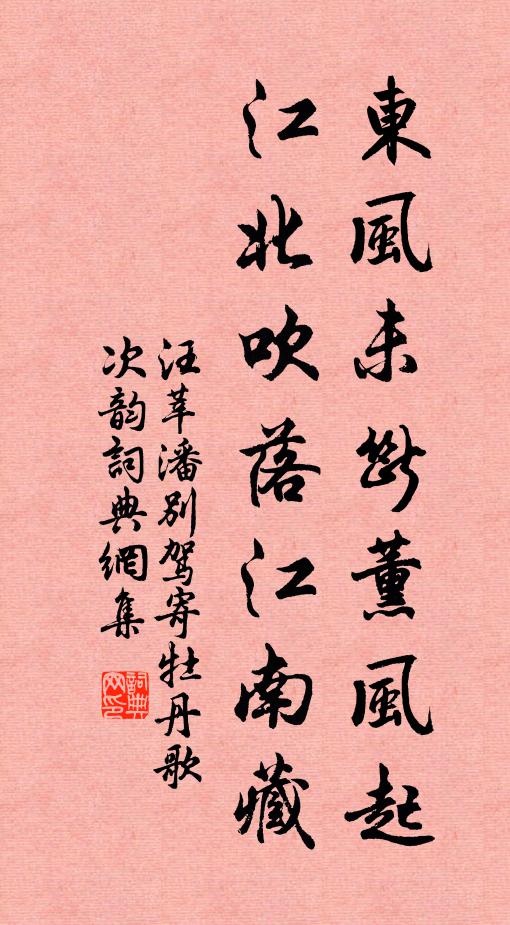 東風未斷薰風起
江北吹落江南藏
汪莘潘別駕寄牡丹歌
次韵詞典網集
詞典
网印